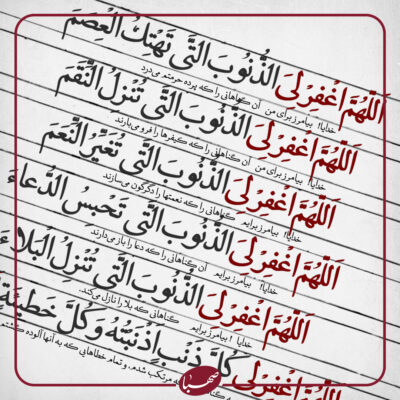 اَللّهُمَّ اغْفِرْ لِیَ الذُّنُوبَ الَّتی تَهْتِکُ الْعِصَمَ
خدایا! بیامرز برای من آن گناهانی را که پرده حرمتم می‌درد
اَللّهُمَّ اغْفِرْ لِیَ الذُّنُوبَ الَّتی تُنْزِلُ النِّقَمَ
خدایا! بیامرز برای من آن گناهانی را که کیفرها را فرو می‌بارند
اَللّهُمَّ اغْفِرْ لِیَ الذُّنُوبَ الَّتی تُغَیِّرُ النِّعَمَ
خدایا! بیامرز برایم گناهانی را که نعمتها را دگرگون می‌سازند
اَللّهُمَّ اغْفِرْ لِیَ الذُّنُوبَ الَّتی تَحْبِسُ الدُّعاءَ
خدایا! بیامرز برایم آن گناهانی را که دعا را باز می‌دارند
اَللّهُمَّ اغْفِرْ لِیَ الذُّنُوبَ الَّتی تُنْزِلُ الْبَلاءَ
خدایا! بیامرز برایم گناهانی که بلا را نازل می‌کند.
اَللّهُمَّ اغْفِرْ لی کُلَّ ذَنْبٍ اَذْنَبْتُهُ وَ کُلَّ خَطیئَةٍ
که مرتکب شدم، و تمام خطاهایی که به آنها آلوده
صهبا